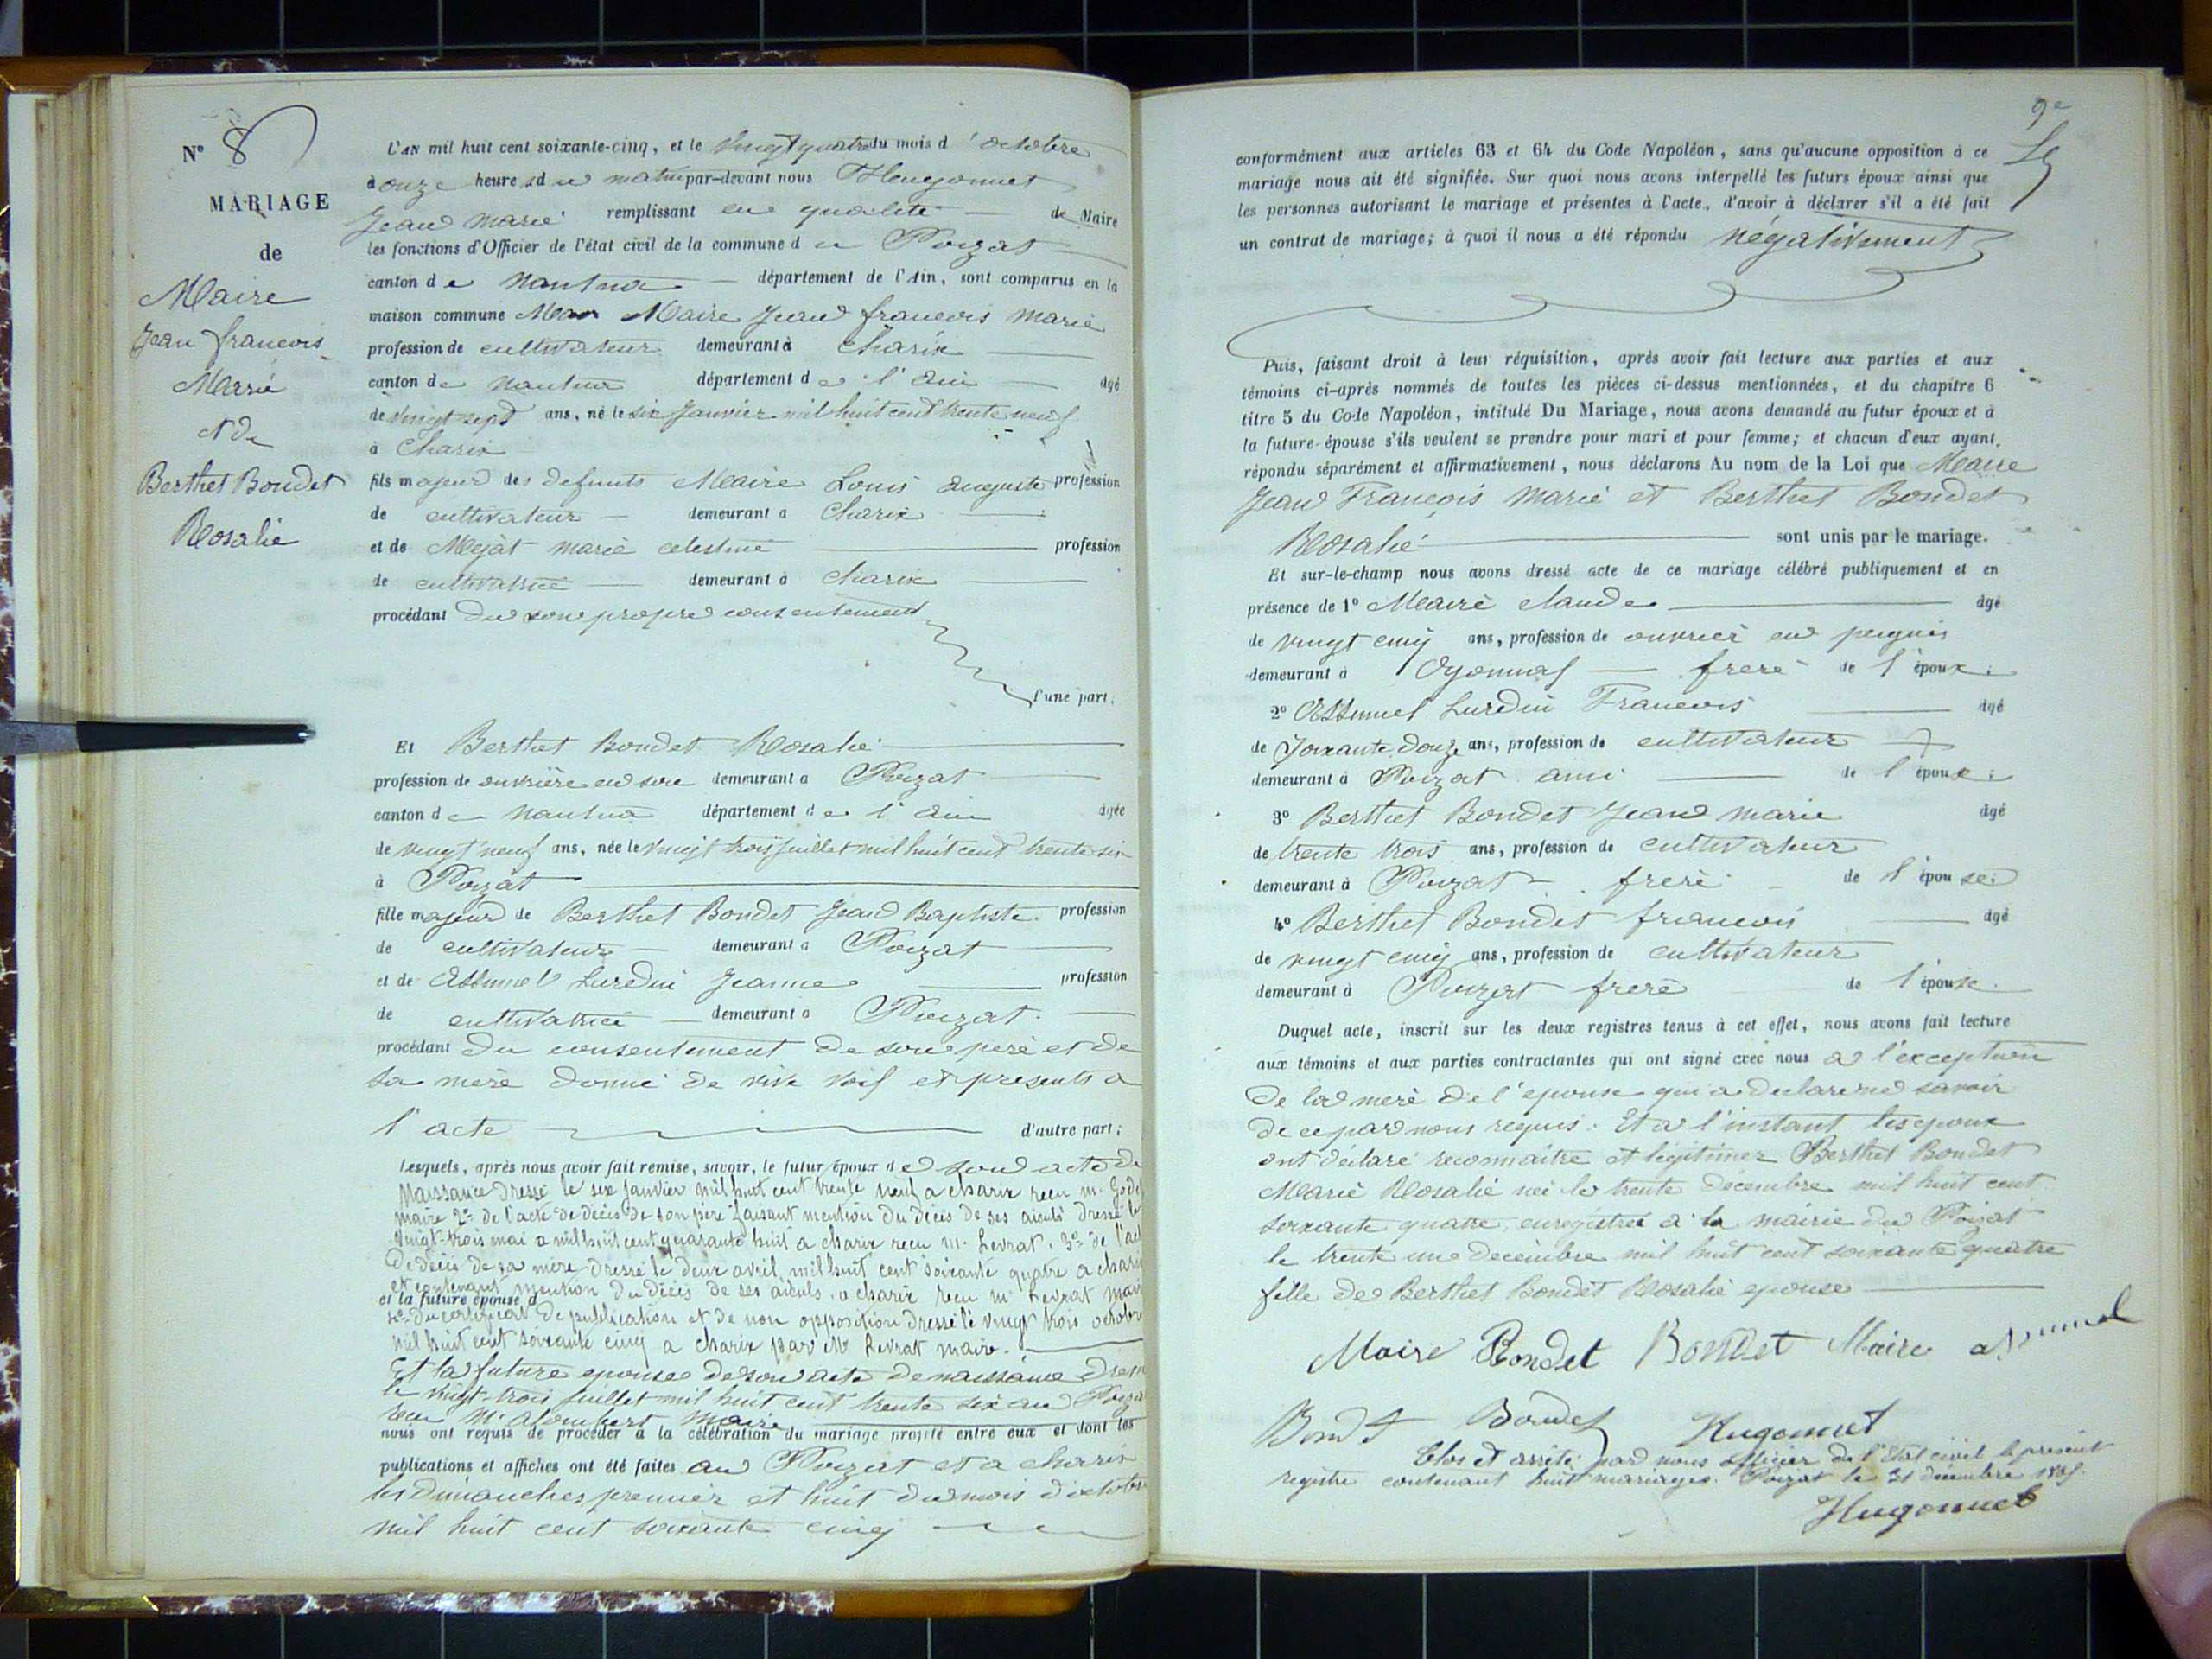 N° 8
MARIAGE
de
Maire
Jean francois
Marie
Et De
Berthet Bondet
Rosalie
L'AN mil huit cent soixante-cinq, et le vingt quatre du mois d'octobre
à onze heures du matin par-devant nous Hugonnet
Jean Marie remplissant en qualité de Maire
les fonctions d'Officier de l'état civil de la commune du Poizat
canton de Nantua département de l'Ain, sont comparus en la
maison commune Maire Jean francois marie
profession de cultivateur demeurant à Charix
canton de Nantua département de l'ain âgé
de vingt sept ans, né le six Janvier mil huit cent trente neuf
à Charix
fils majeur des defunts Maire Louis auguste profession
de cultivateur demeurant à Charix
et de Mejat marie celestine profession
de cultivatrice demeurant à Charix
procédant de son propre consentement
d'une part.
Et Berthet Bondet Rosalie
profession de ouvrière en soie demeurant à Poizat
canton de Nantua département de l'ain âgée
de vingt neuf ans, née le vingt trois juillet mil huit cent trente six
à Poizat
fille majeur de Berthet Bondet Jean Baptiste profession
de cultivateur demeurant à Poizat
et de Assumel Lurdin Jeanne profession
de cultivatrice demeurant à Poizat.
procédant du consentement de son pere et de
sa mere donné de vive voix et presents a
l'acte d'autre part;
Lesquels, après nous avoir fait remise, savoir, le futur époux de son acte de
Naissance dressé le six Janvier mil huit cent trente neuf a charix recu m.
maire 2° de l'acte de décès de son père faisant mention du décès de ses aïeuls dressé le
vingt-trois mai mil huit cent quarante huit a charix recu m. Levrat. 3° de l'act
de décès de sa mère dressé le deux avril mil huit cent soixante quatre a charix
et contenant mention du décès de ses aïeuls a charix recu m Levrat mair
et la future épouse d
4° du certificat de publication et de non opposition dressé le vingt trois octobre
mil huit cent soixante cinq a charix par M Levrat maire.
Et la future epouse de son acte de naissance dressé
le vingt-trois juillet mil huit cent trente six au Poizat
recu Mr alombert Maire
nous ont requis de procéder à la célébration du mariage projeté entre eux et dont les
publications et affiches ont été faites au Poizat et a charix
les Dimanches premier et huit du mois d'octobre
mil huit cent soixante cinq
9e
conformément aux articles 63 et 64 du Code Napoléon, sans qu'aucune opposition à ce
mariage nous ait été signifiée. Sur quoi nous avons interpellé les futurs époux ainsi que
les personnes autorisant le mariage et présentes à l'acte, d'avoir à déclarer s'il a été fait
un contrat de mariage; à quoi il nous a été répondu négativement
Puis, faisant droit à leur réquisition, après avoir fait lecture aux parties et aux
témoins ci-après nommés de toutes les pièces ci-dessus mentionnées, et du chapitre 6
titre 5 du Code Napoléon, intitulé Du Mariage, nous avons demandé au futur époux et à
la future épouse s'ils veulent se prendre pour mari et pour femme; et chacun d'eux ayant
répondu séparément et affirmativement, nous déclarons Au nom de la Loi que Maire
Jean Francois Marie et Berthet Bondet
Rosalie sont unis par le mariage.
Et sur-le-champ nous avons dressé acte de ce mariage célébré publiquement et en
présence de 1° Maire claude âgé
de vingt cinq ans, profession de ouvrier en peignes
demeurant à Oyonnax frere de l'époux;
2° Assumel Lurdin Francois âgé
de soixante douze ans, profession de cultivateur
demeurant à Poizat ami de l'époux;
3° Berthet Bondet Jean Marie âgé
de trente trois ans, profession de cultivateur
demeurant à Poizat frere de l'épouse
4° Berthet Bondet francois âgé
de vingt cinq ans, profession de cultivateur
demeurant à Poizat frere de l'épouse.
Duquel acte, inscrit sur les deux registres tenus à cet effet, nous avons fait lecture
aux témoins et aux parties contractantes qui ont signé avec nous a l'exception
de la mere de l'epouse qui a declare ne savoir
de ce par nous requis. Et a l'instant les epoux
ont déclaré reconnaitre et légitimer Berthet Bondet
Marie Rosalie née le trente décembre mil huit cent
soixante quatre, enregistrée a la mairie du Poizat
le trente une decembre mil huit cent soixante quatre
fille de Berthet Bondet Rosalie epouse
Maire Bondet Bondet Maire assumel
Bondet Bondet Hugonnet
Clos et arrêté par nous officier de l'Etat civil le présent
registre contenant huit mariages. Poizat le 31 decembre 1865.
Hugonnet